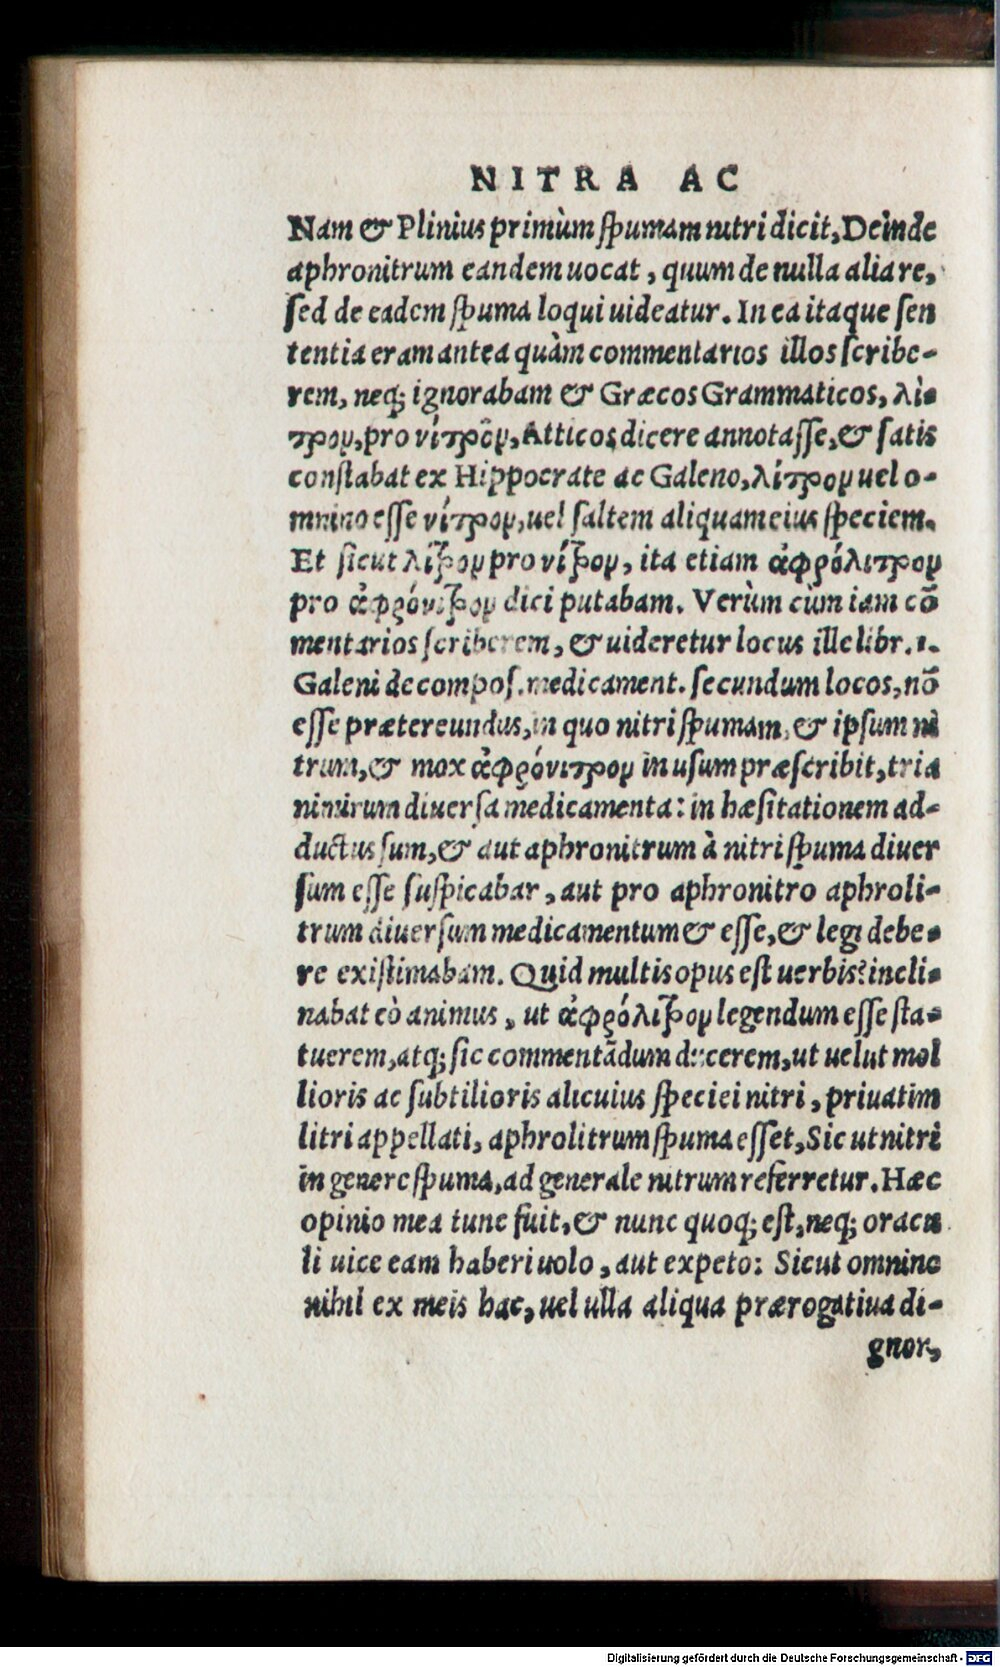 NITRA AC
Nam & Plinius primùm spumam nitri dicit, Deinde
aphronitrum eandem uocat, quum de nulla alia re,
sed de eadem spuma loqui uideatur. In ea itaque sen
tentia eram antea quàm commentarios illos scribe-
rem, neq; ignorabam & Græcos Grammaticos, λί-
τρον, pro νίτρον, Atticos dicere annotasse, & satis
constabat ex Hippocrate ac Galeno, λίτρον uel o-
mnino esse νίτρον, uel saltem aliquam eius speciem.
Et sicut λίτρον pro νίτρον, ita etiam ἀφρόλιτρον
pro ἀφρόνιτρον dici putabam. Verùm cùm iam cō
mentarios scriberem, & uideretur locus ille libr. 1.
Galeni de compos. medicament. secundum locos, nō
esse prætereundus, in quo nitri spumam, & ipsum ni
trum, & mox ἀφρόνιτρον in usum præscribit, tria
nimirum diuersa medicamenta: in hæsitationem ad-
ductus sum, & aut aphronitrum à nitri spuma diuer
sum esse suspicabar, aut pro aphronitro aphroli-
trum diuersum medicamentum & esse, & legi debe-
re existimabam. Quid multis opus est uerbis? incli-
nabat eò animus, ut ἀφρόλιτρον legendum esse sta-
tuerem, atq; sic commentādum ducerem, ut uelut mol
lioris ac subtilioris alicuius speciei nitri, priuatim
litri appellati, aphrolitrum spuma esset, Sicut nitri
in genere spuma, ad generale nitrum referretur. Hæc
opinio mea tunc fuit, & nunc quoq; est, neq; oracu
li uice eam haberi uolo, aut expeto: Sicut omnino
nihil ex meis hac, uel ulla aliqua prærogatiua di-
gnor,
Digitalisierung gefördert durch die Deutsche Forschungsgemeinschaft - DFG